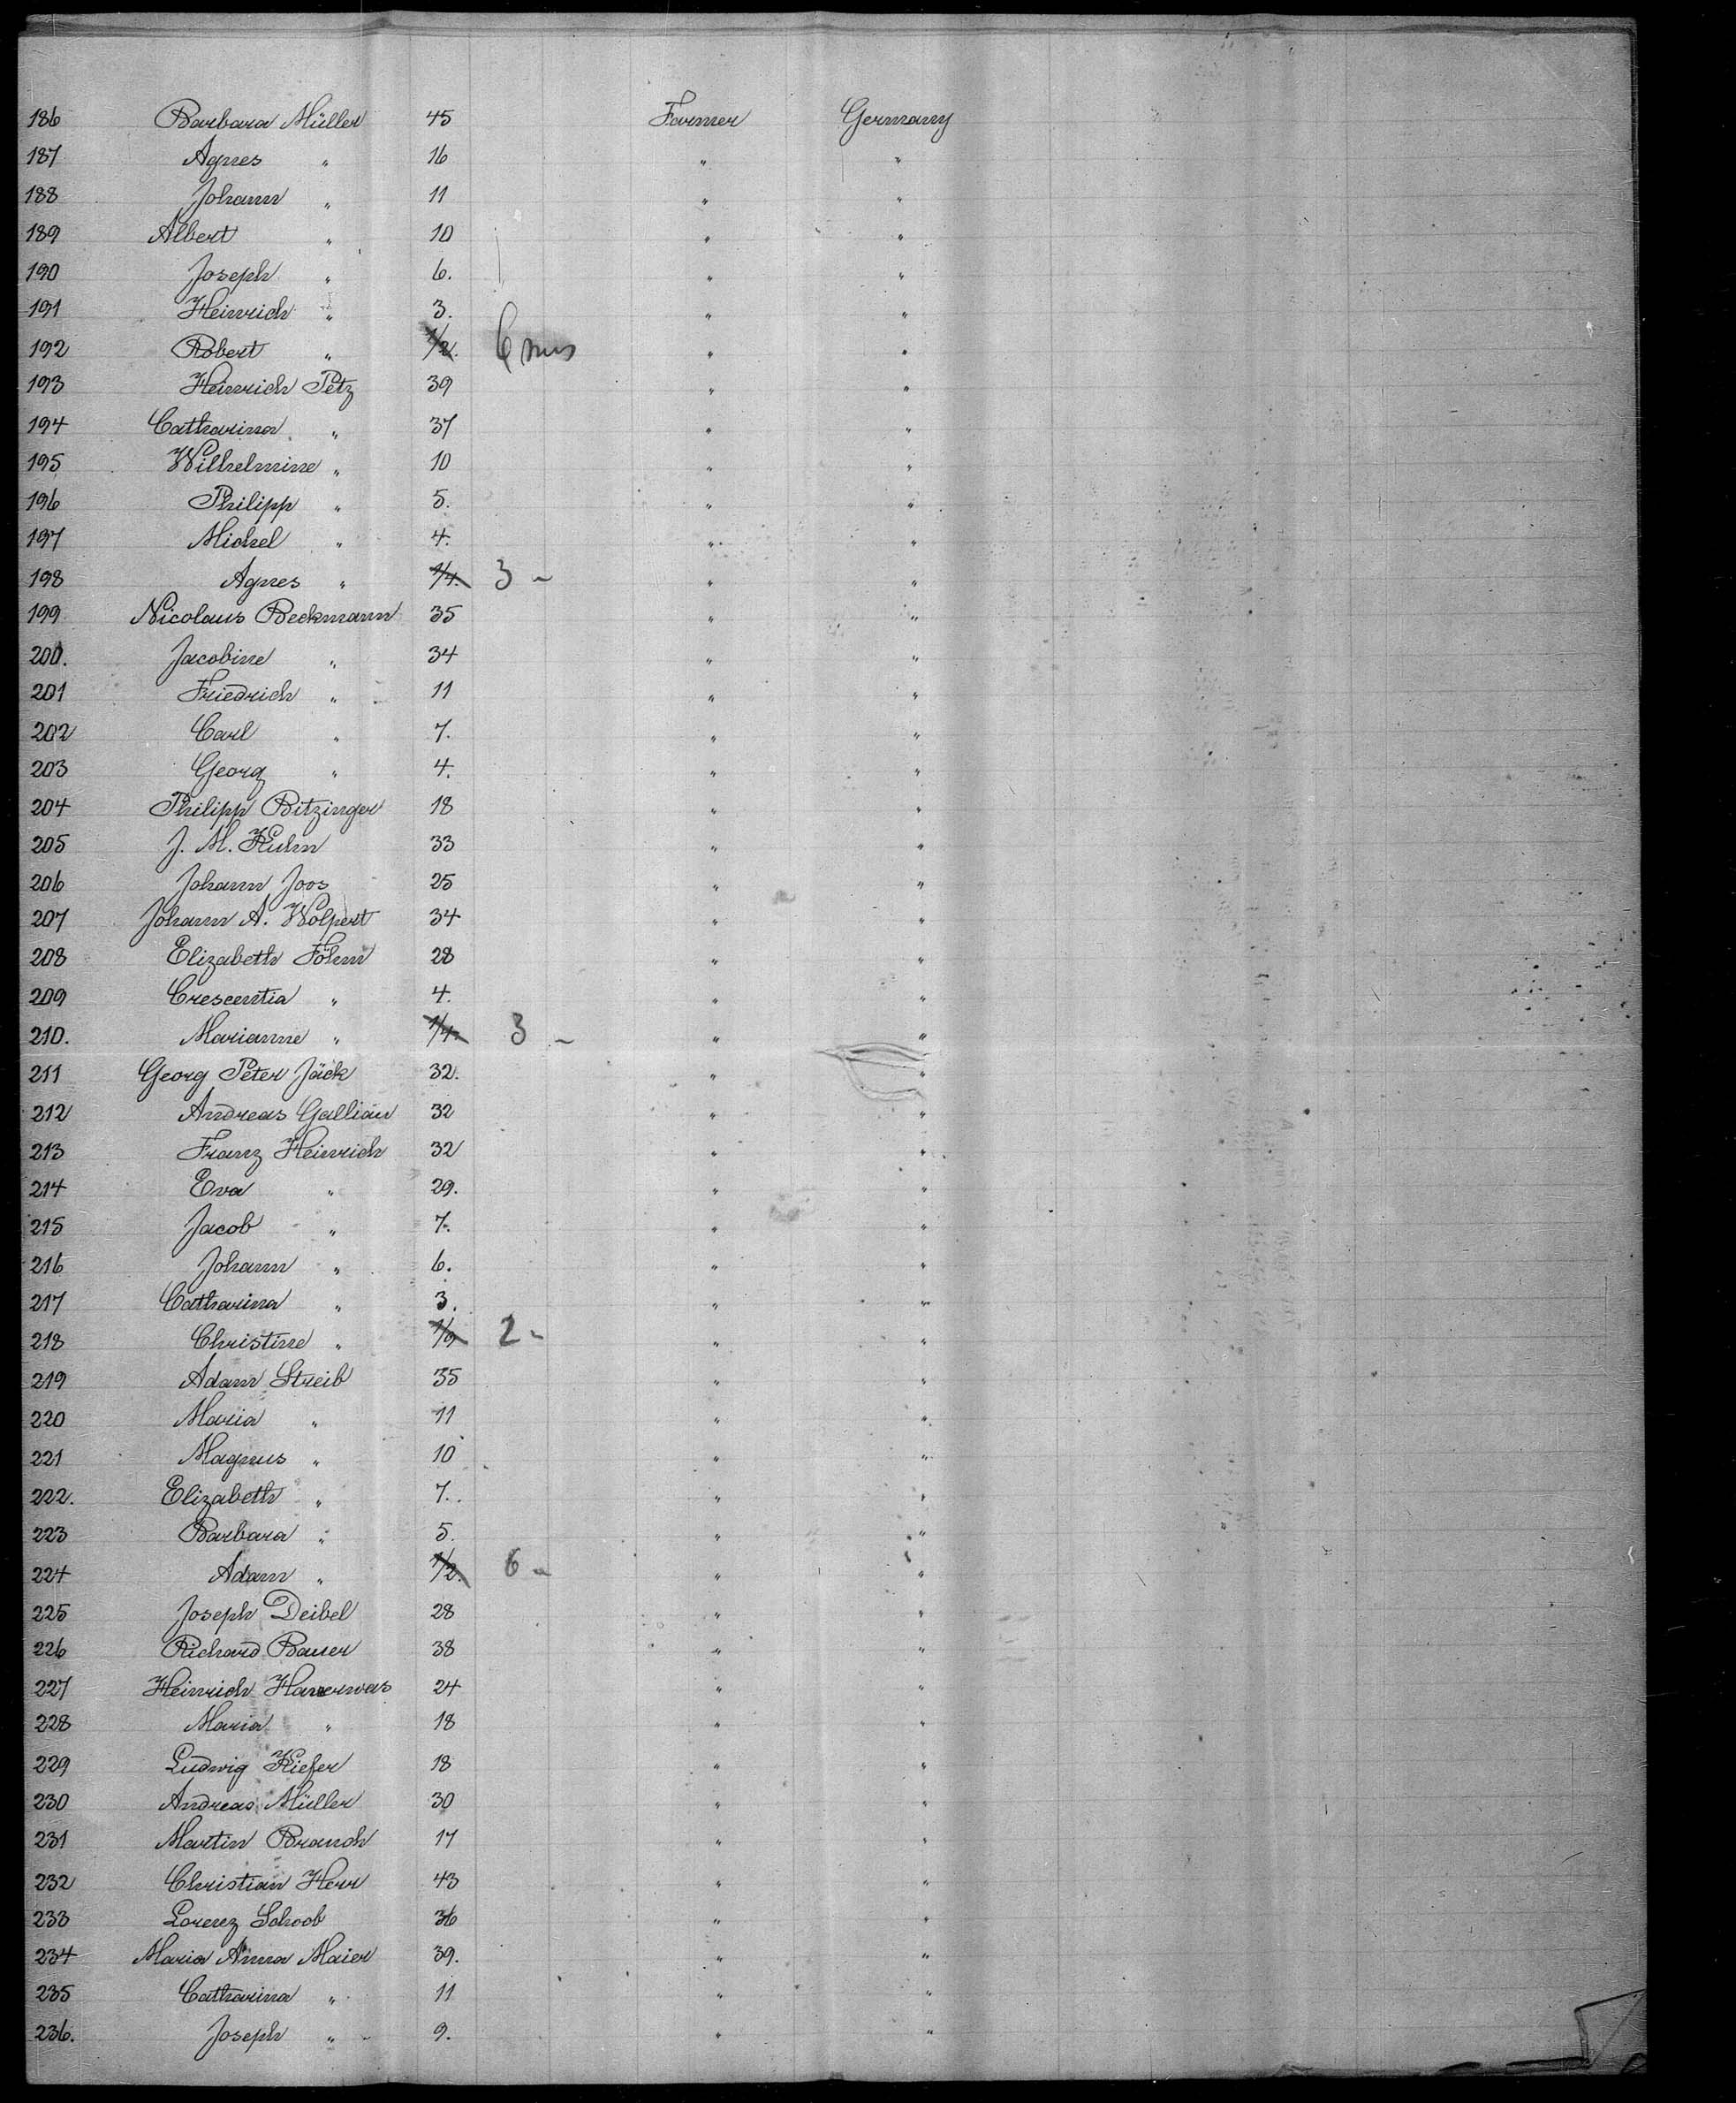 186 Barbara Müller 45 Farmer Germany
187 Agnes " 16 " "
188 Johann " 11 " "
189 Albert " 10 " "
190 Joseph " 6. " "
191 Heinrich " 3. " "
192 Robert " 1/2. 6 mos " "
193 Heinrich Petz 39 " "
194 Catharina " 37 " "
195 Wilhelmine " 10 " "
196 Philipp " 5. " "
197 Michel " 4. " "
198 Agnes " 1/4. 3 - " "
199 Nicolaus Beckmann 35 " "
200. Jacobine " 34 " "
201 Friedrich " 11 " "
202 Carl " 7. " "
203 Georg " 4. " "
204 Philipp Bitzinger 18 " "
205 J. M. Kuhn 33 " "
206 Johann Joos 25 " "
207 Johann A. Wolpert 34 " "
208 Elizabeth Föhn 28 " "
209 Crescentia " 4. " "
210. Marianne " 1/4. 3 - " "
211 Georg Peter Jäck 32. " "
212 Andreas Gallian 32 " "
213 Franz Heinrich 32 " "
214 Eva " 29. " "
215 Jacob " 7. " "
216 Johann " 6. " "
217 Catharina " 3. " "
218 Christine " 2 - " "
219 Adam Streib 35 " "
220 Maria " 11 " "
221 Magnus " 10 " "
222. Elizabeth " 7. " "
223 Barbara " 5. " "
224 Adam " 1/2. 6 - " "
225 Joseph Deibel 28 " "
226 Richard Bauer 38 " "
227 Heinrich 24 " "
228 Maria " 18 " "
229 Ludwig Kiefer 18 " "
230 Andreas Müller 30 " "
231 Martin Brauch 17 " "
232 Christian Herr 43 " "
233 Lorenz Schoob 36 " "
234 Maria Anna Maier 39. " "
235 Catharina " 11 " "
236. Joseph " 9. " "